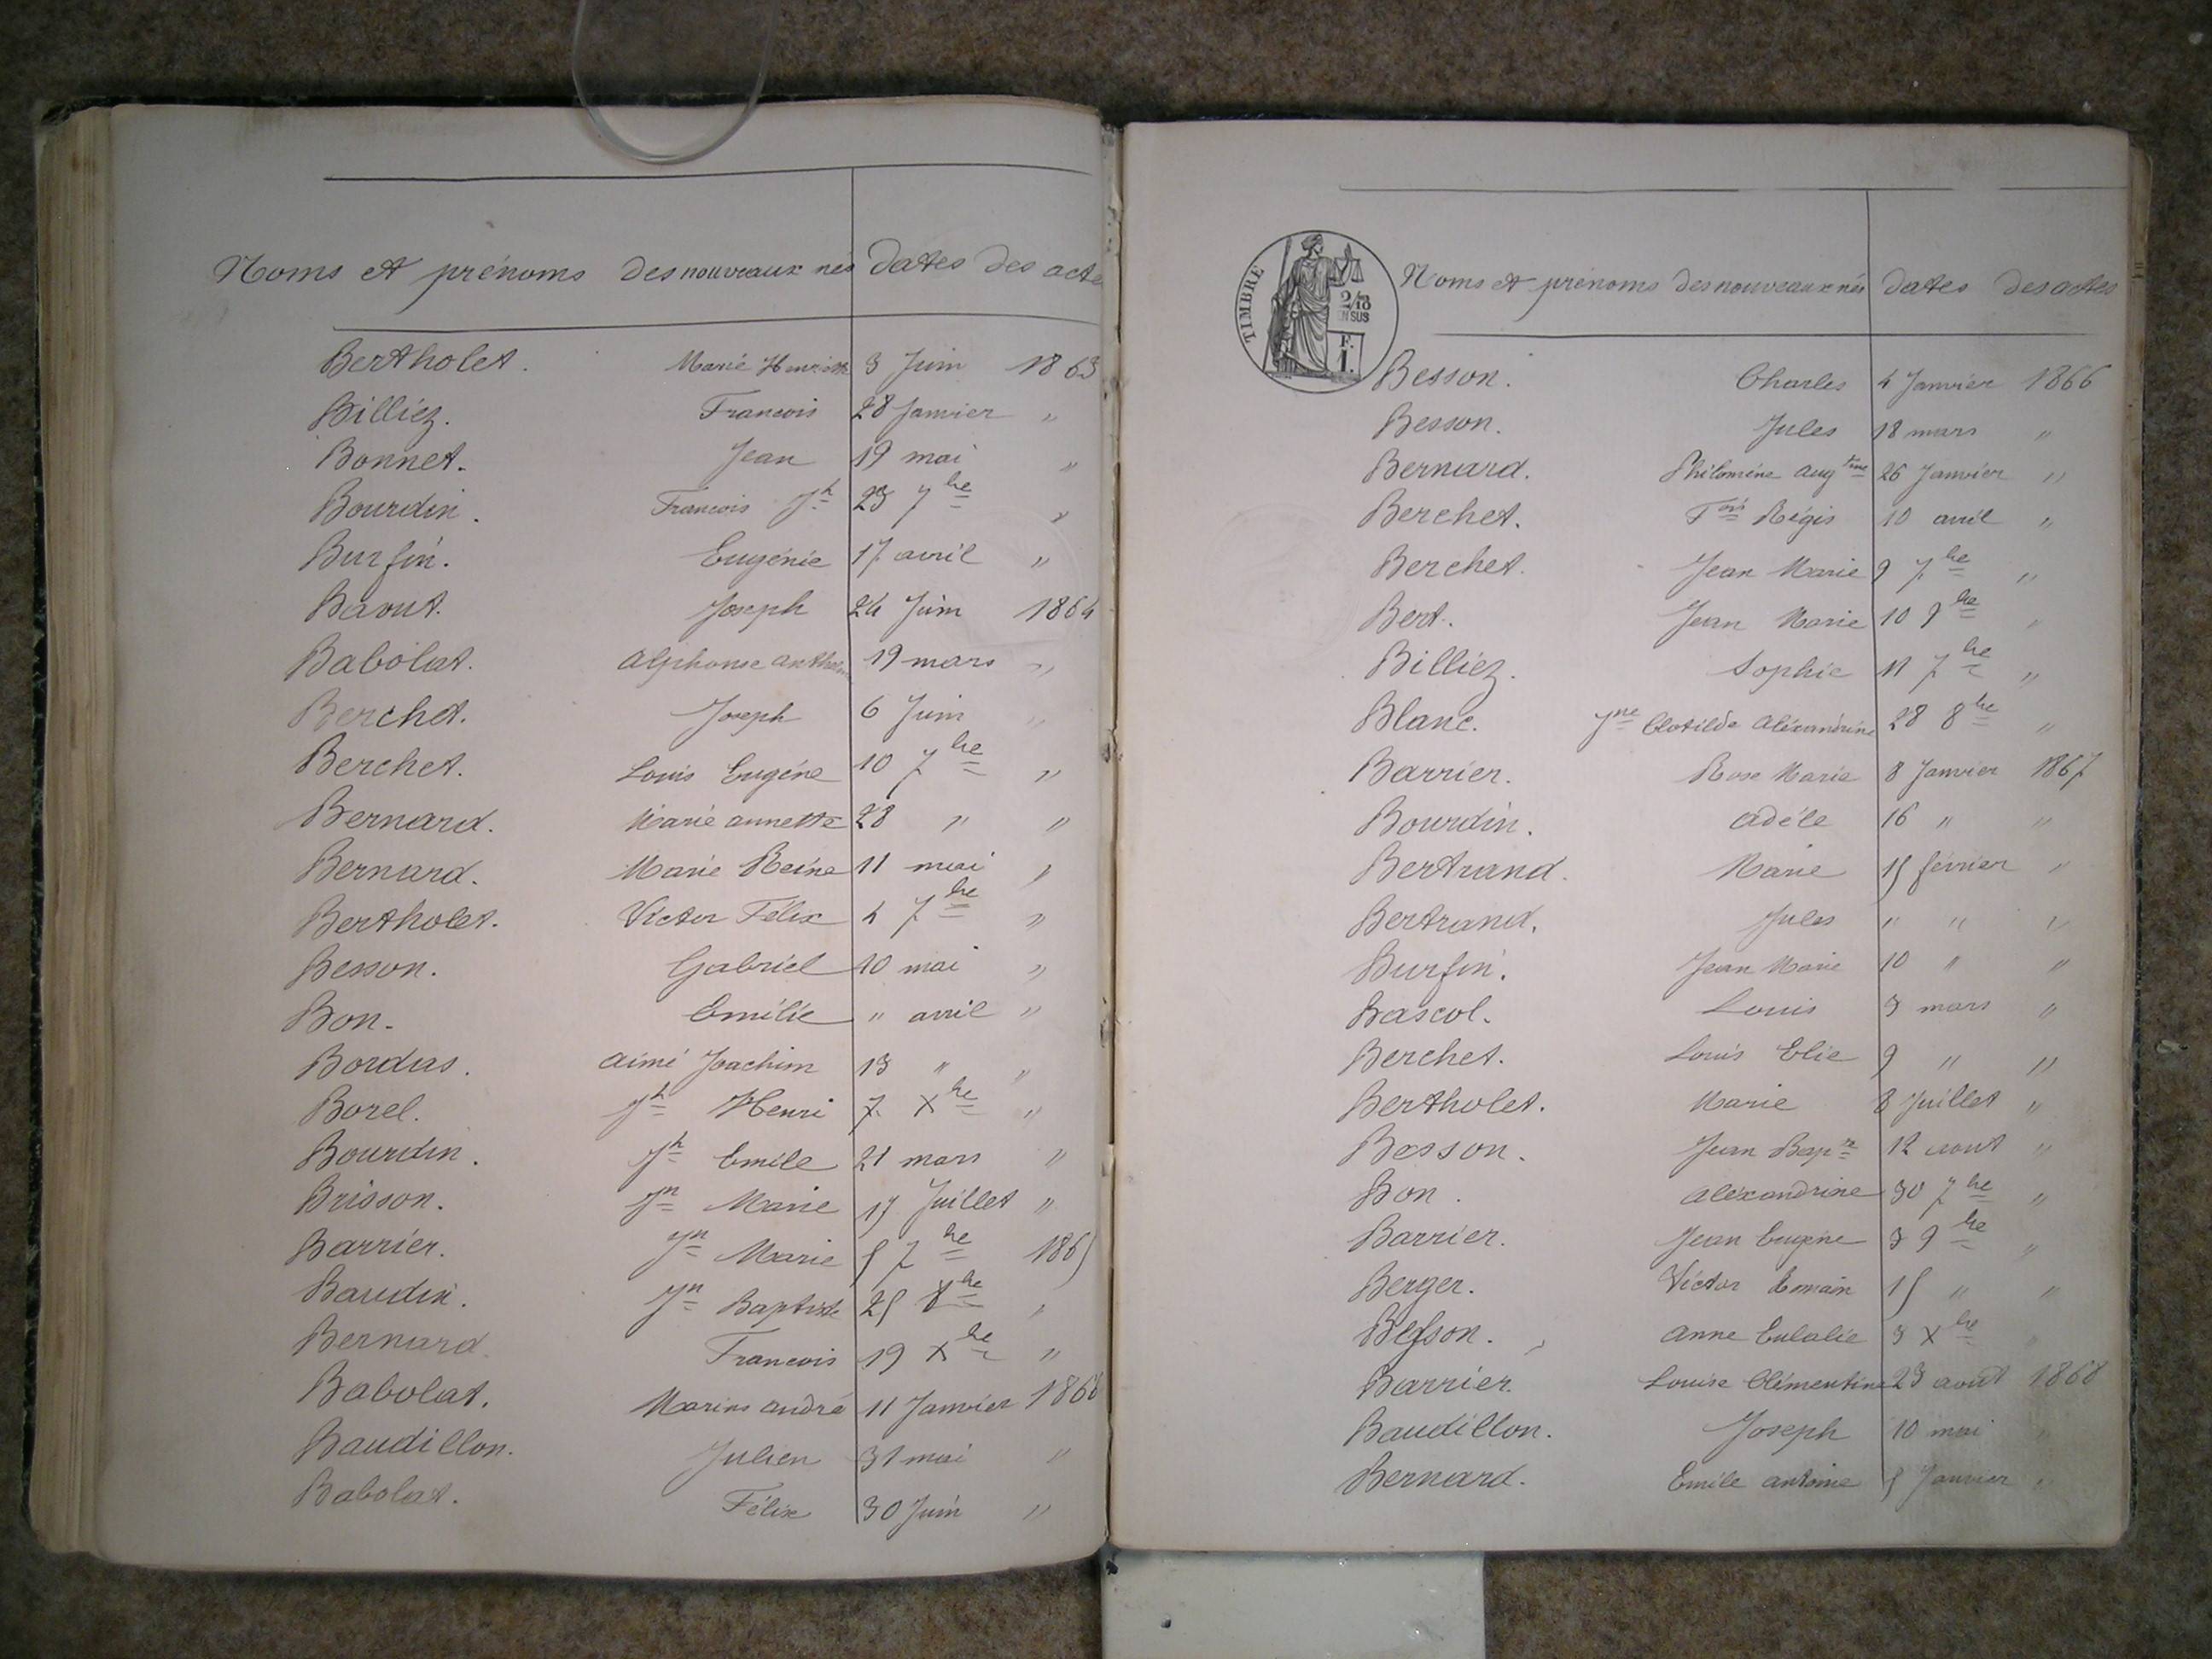 Noms et prénoms des nouveaux nés dates des acte
Bertholet. Marie Henriette 3 Juin 1863
Billiez. Francois 28 Janvier "
Bonnet. Jean 19 mai "
Bourdin. Francois Jh 23 7bre "
Burfin. Eugénie 17 avril "
Baout. Joseph 24 Juin 1864
Babolat. Alphonse 19 mars "
Berchet. Joseph 6 Juin "
Berchet. Louis Eugéne 10 7bre "
Bernard. Marie annette 28 " "
Bernard. Marie Reine 11 mai "
Bertholet. Victor Félix 4 7bre "
Besson. Gabriel 10 mai "
Bon. Emilie " avril "
Bordas. Aimé Joachim 13 " "
Borel. Jh Henri 7 Xbre "
Bourdin. Jh Emile 21 mars "
Brisson. Jn Marie 15 Juillet "
Barrier. Jn Marie 5 7bre 1865
Baudin. Jn Baptiste 25 8bre "
Bernard Francois 19 Xbre "
Babolat. Marius andré 11 Janvier 1866
Baudillon. Julien 31 mai "
Babolat. Félix 30 Juin "
TIMBRE
2/10
EN SUS
F.
1.
Noms et prénoms des nouveaux nés dates des actes
Besson. Charles 4 Janvier 1866
Besson. Jules 18 mars "
Bernard. Philoméne Augtine 26 Janvier "
Berchet. Fois Régis 10 avril "
Berchet. Jean Marie 9 7bre "
Bert. Jean Marie 10 9bre "
Billiez. Sophie 11 7bre "
Blanc. Jne Clotilde Aléxandrine 28 8bre "
Barrier. Rose Marie 8 Janvier 1867
Bourdin. Adéle 16 " "
Bertrand. Marie 15 février "
Bertrand. Jules " " "
Burfin. Jean Marie 10 " "
Bascol. Louis 3 mars "
Berchet. Louis Elie 9 " "
Bertholet. Marie 8 Juillet "
Besson. Jean Bapte 12 aout "
Bon. Aléxandrine 30 7bre "
Barrier. Jean Eugene 3 9bre "
Berger. Victor Romain 15 " "
Besson. Anne Eulalie 3 Xbre "
Barrier. Louise Clémentine 23 aout 1868
Baudillon. Joseph 10 mai "
Bernard. Emile antoine 5 Janvier "